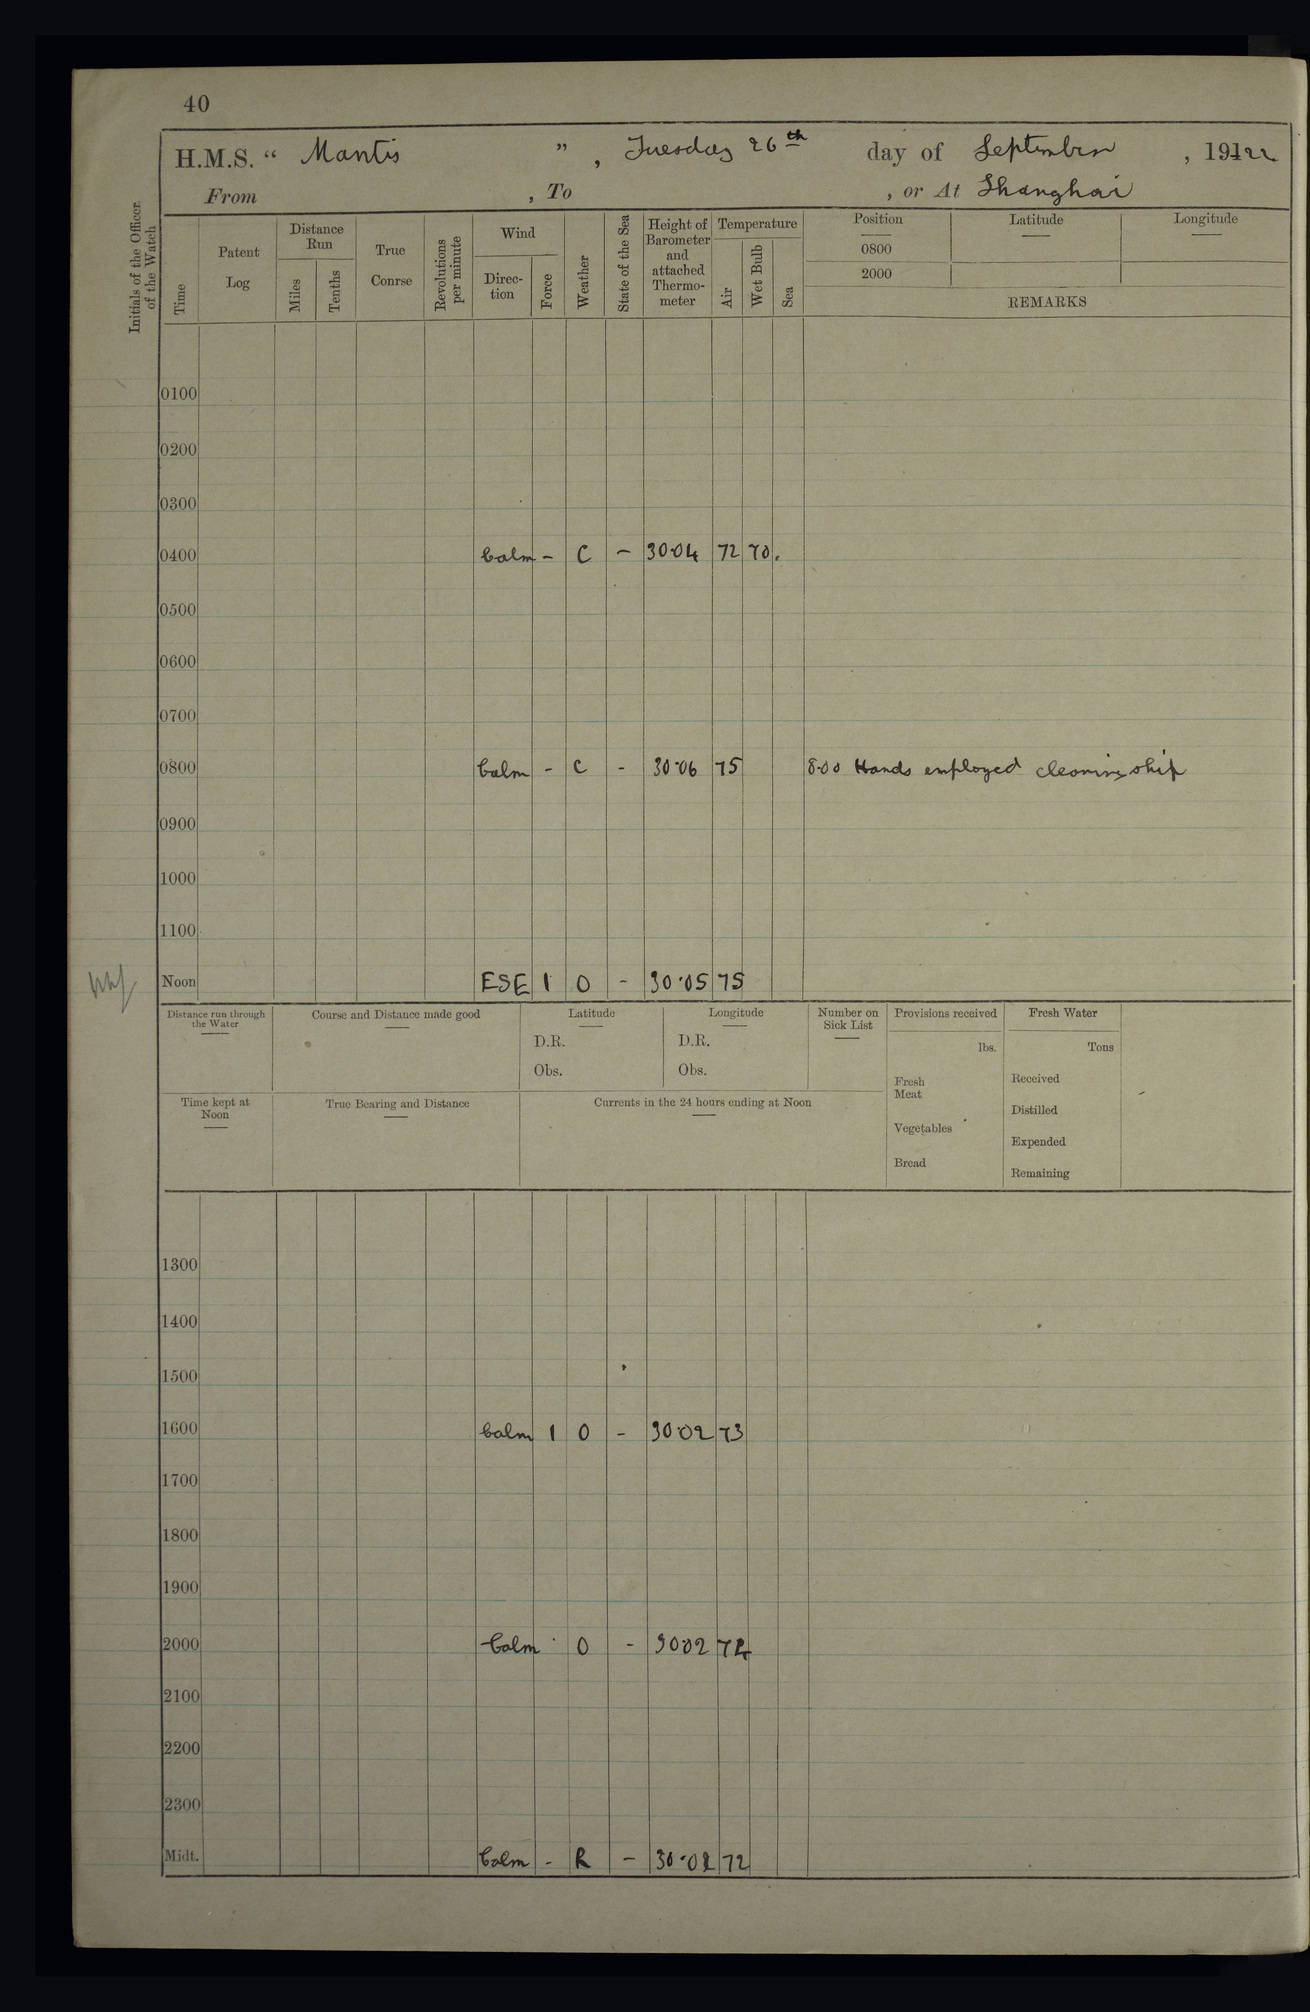 40
H.M.S. “ Mantis ” , Tuesday 26th day of September , 1922
From , To , or At Shanghai
Initials of the Officer of the Watch
Time
Patent Log
Distance Run
Miles
Tenths
True Conrse
Revolutions per minute
Wind
Direc-tion
Force
Weather
State of the Sea
Height of Barometer and attached Thermo-meter
Temperature
Air
Wet Bulb
Sea
Position
Latitude
Longitude
0800
2000
REMARKS
0100
0200
0300
0400 Calm - C - 30.04 72 70.
0500
0600
0700
0800 Calm - C - 30.06 75 8.00 Hands employed cleaning ship
0900
1000
1100
Noon ESE 1 O - 30.05 75
Distance run through the Water
Course and Distance made good
Latitude
D.R.
Obs.
Longitude
D.R.
Obs.
Number on Sick List
Provisions received
lbs.
Fresh Meat
Vegetables
Bread
Fresh Water
Tons
Received
Distilled
Expended
Remaining
Time kept at Noon
True Bearing and Distance
Currents in the 24 hours ending at Noon
1300
1400
1500
1600 Calm 1 O - 30.02 73
1700
1800
1900
2000 Calm O - 3002 72
2100
2200
2300
Midt. Calm - R - 30.02 72